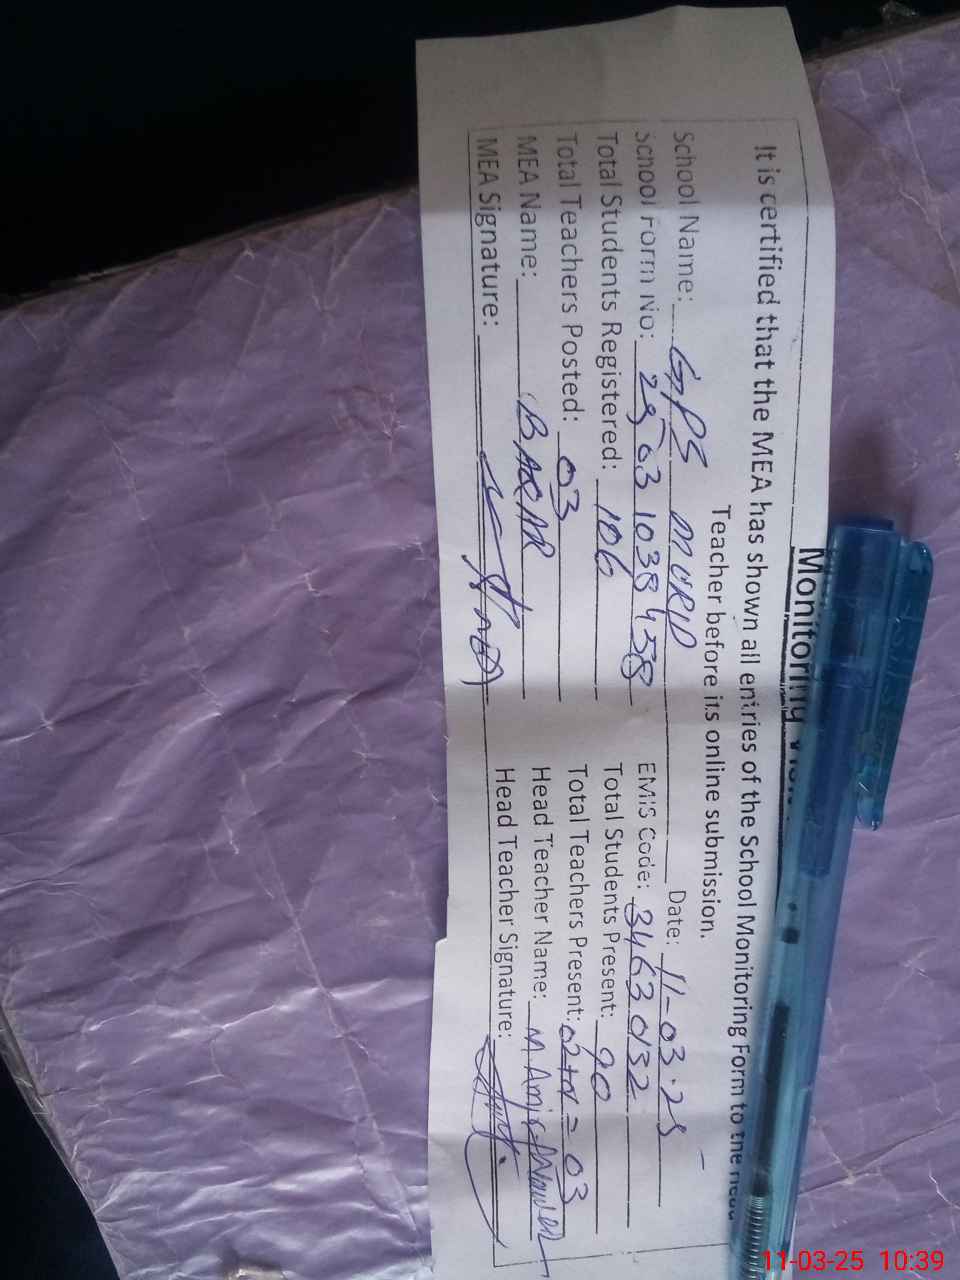 Monitoring
It is certified that the MEA has shown all entries of the School Monitoring Form to the Head
Teacher before its online submission.
School Name: GPS MURID Date: 11-03-25
School Form No: 2503 1038458 EMIS Code: 34630132
Total Students Registered: 106 Total Students Present: 90
Total Teachers Posted: 03 Total Teachers Present: 02+01=03
MEA Name: BAQAR Head Teacher Name: M. Amjad
MEA Signature: Head Teacher Signature:
11-03-25 10:39